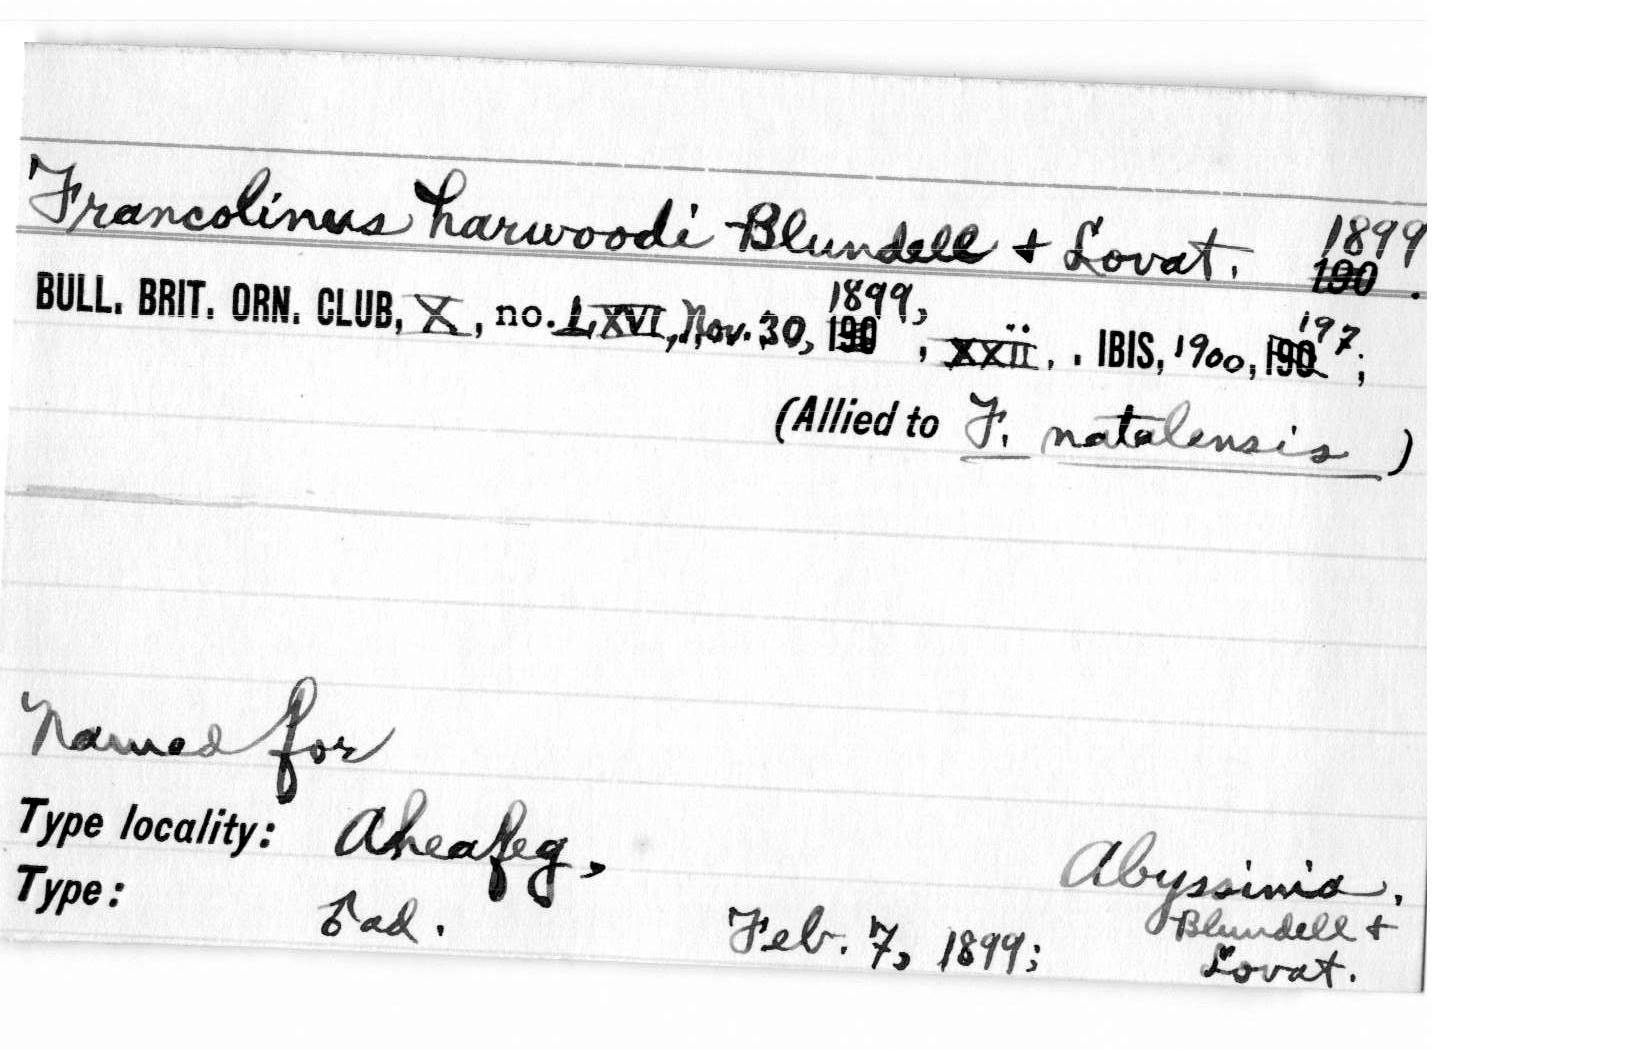 Francolinus harwoodi Blundell & Lovat. 1899
190 .
BULL. BRIT. ORN. CLUB, X, no. LXVI, Nov. 30, 190 1899, , xxii, . IBIS, 1900, 190 197;
(Allied to F. natalensis )
Named for
Type locality: Aheafeg, Abyssinia,
Type: ad. Feb. 7, 1899; Blundell &
Lovat.